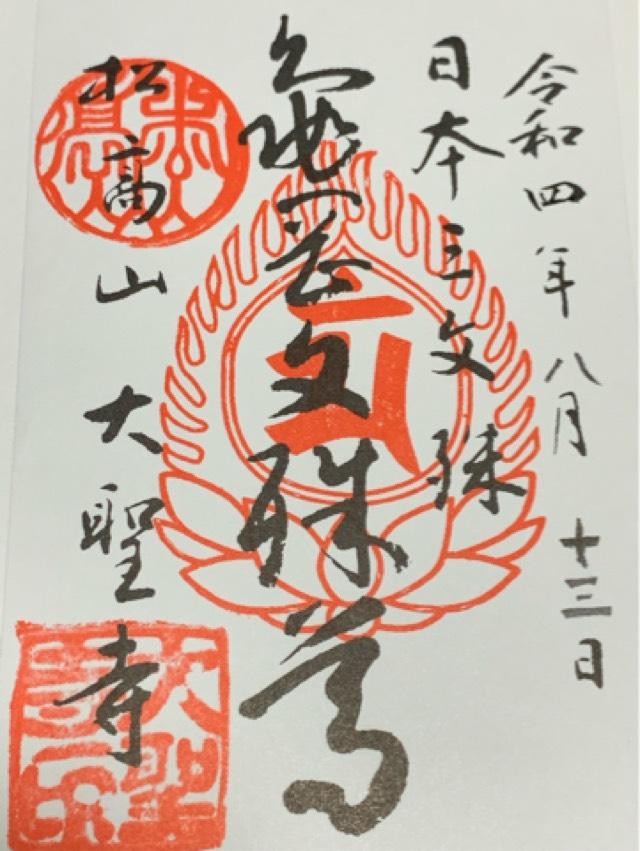 令和四年八月十三日
日本三文殊
亀岡文殊尊
松高山 大聖寺